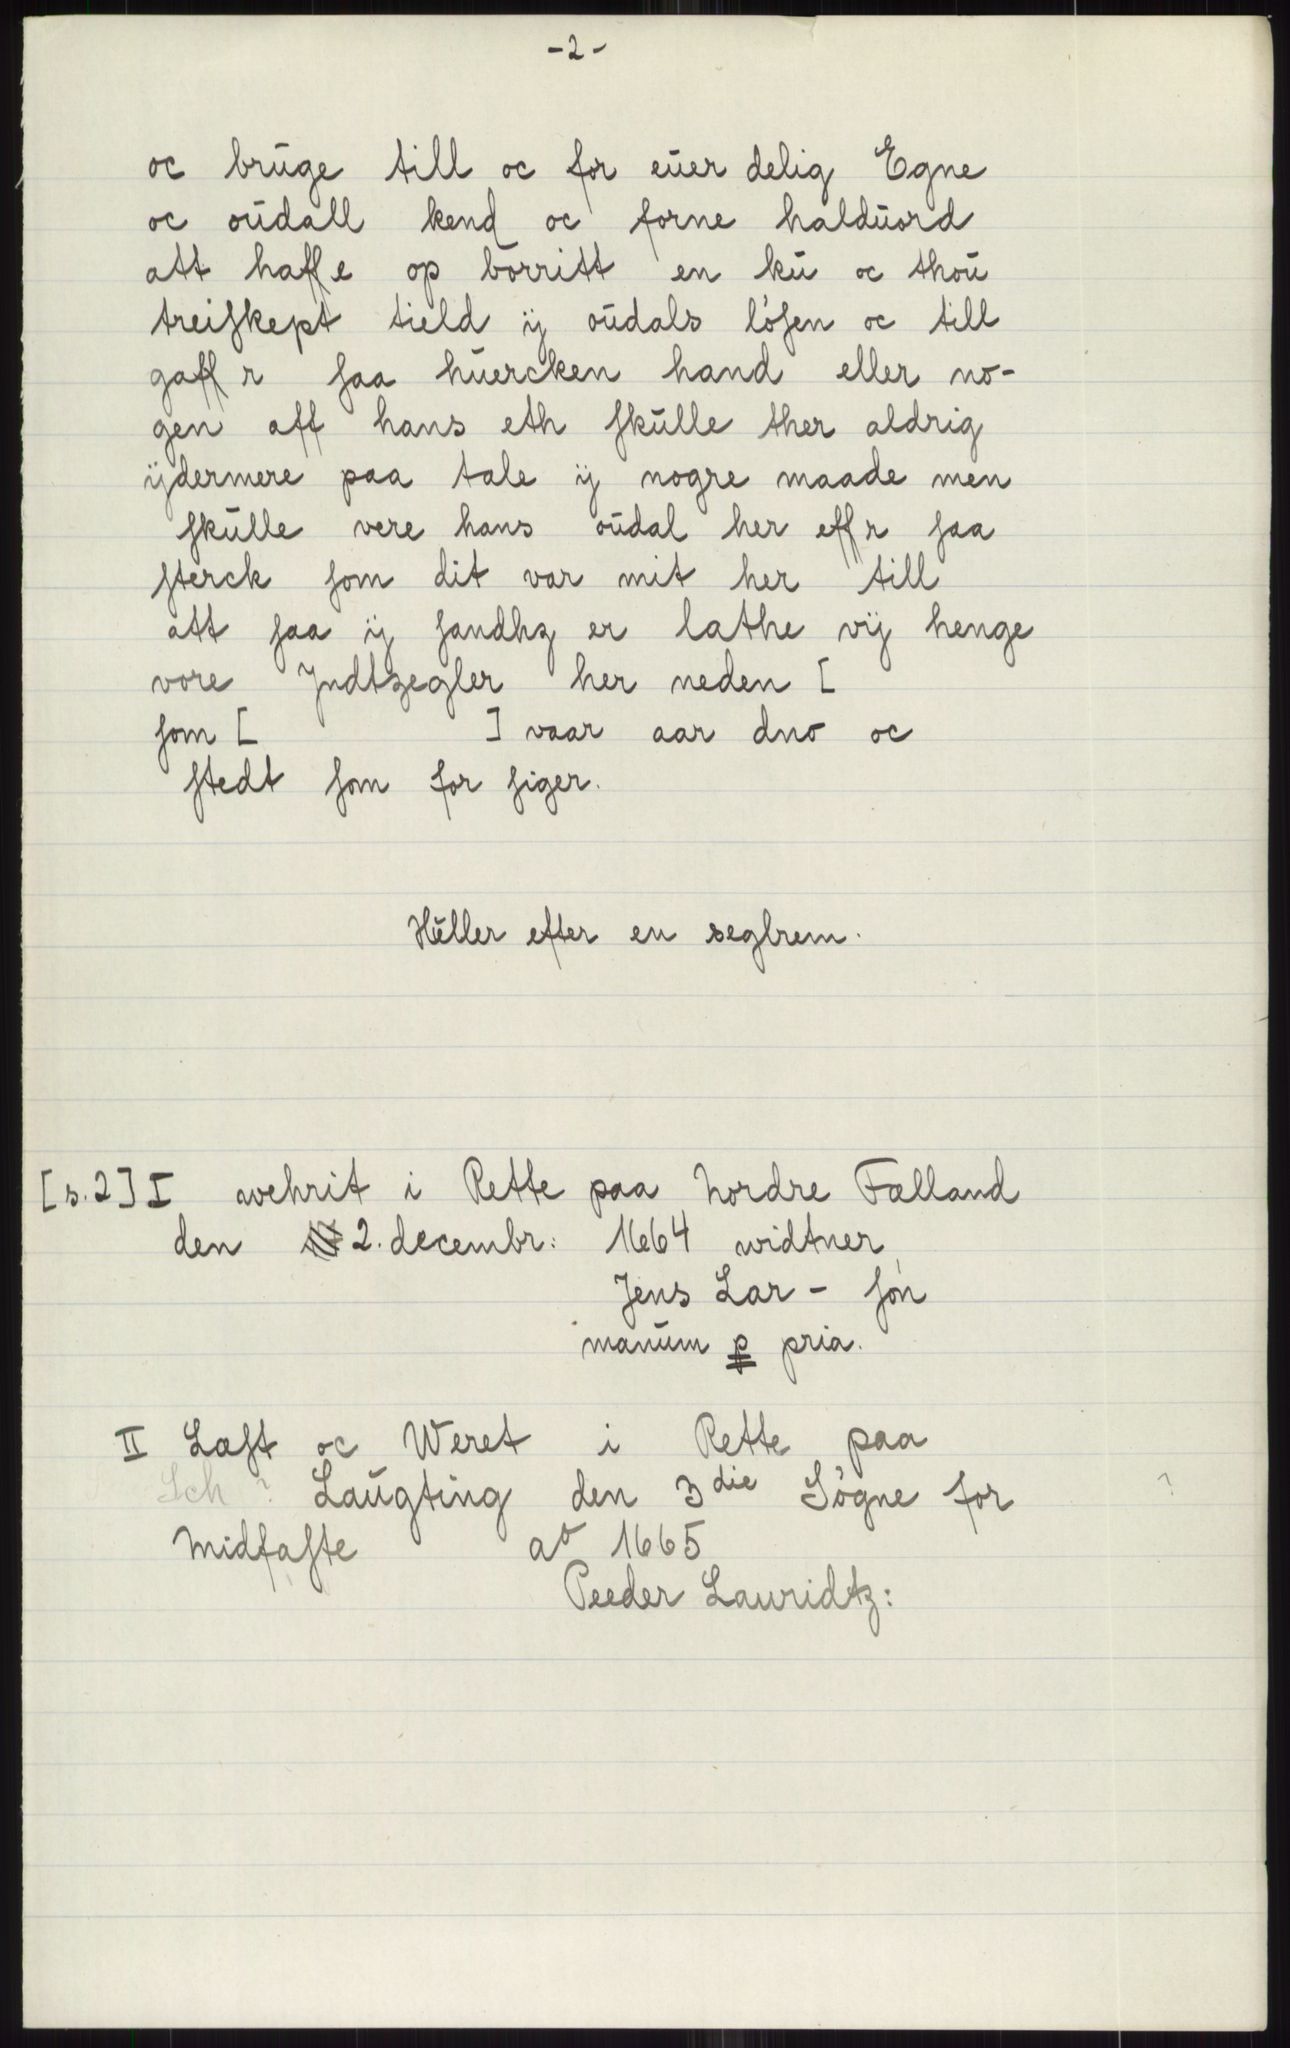 -2-
oc brūge till oc for eūer delig Egne
oc oūdall kend oc forne haldūord
att haffe op borritt en kū oc thoū
treiſkept tield ij oūdals løſen oc till
gaff r ſaa hūercken hand eller no-
gen aff hans eth ſkūlle ther aldrig
ijdermere paa tale ij nogre maade men
ſkūlle vere hans oūdal her eff r ſaa
ſterck ſom dit var mit her till
att ſaa ij ſandhz er lathe vij henge
vore Jndtzegler her neden [
ſom [ ] vaar aar dno oc
ſtedt ſom for ſiger.
Hūller efter en seglrem.
[s.2] I wehrit i Rette paa Nordre Fælland
den 2. decembr: 1664 widtner
Jens Lar - ſøn
manūm p pria.
II Læſt oc Weret i Rette paa
Sch ? Laūgting den 3die Søgne for ?
Midfaſte ao 1665
Peeder Lauridtz: